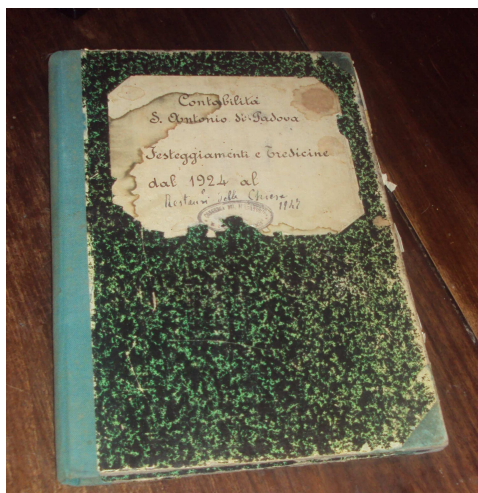 Contabilità
S. Antonio di Padova
Festeggiamenti e Tredicine
dal 1924 al
Restauri della Chiesa
1942